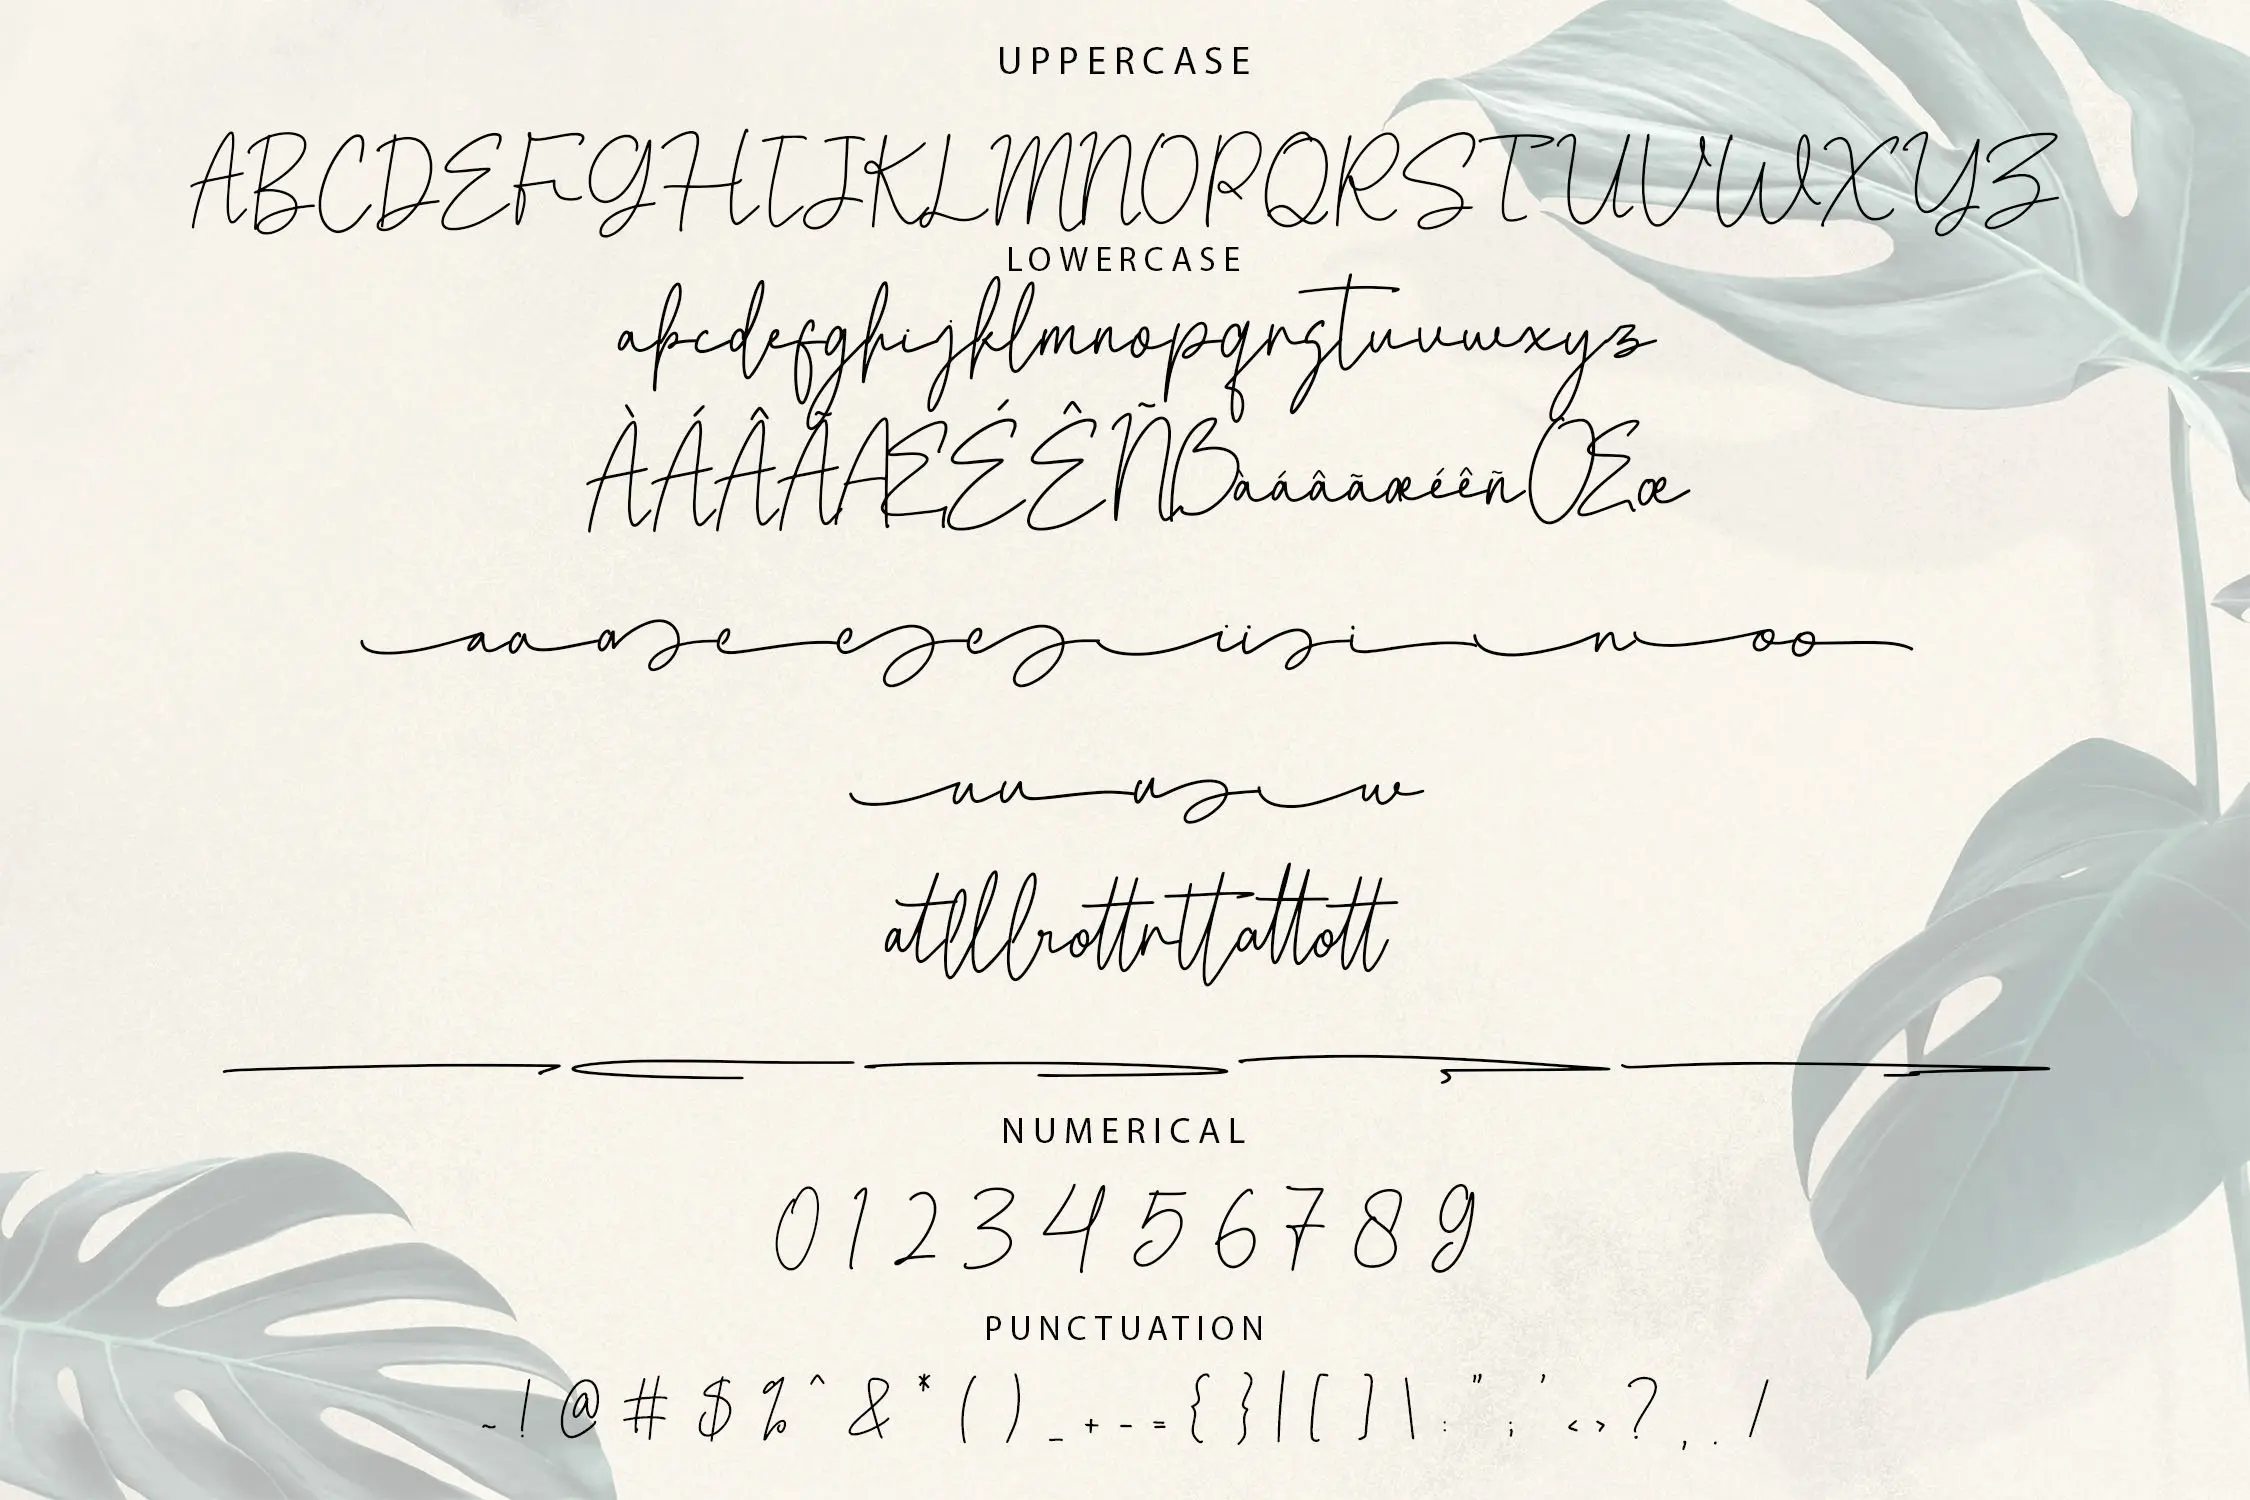 UPPERCASE
ABCDEFGHIJKLMNOPQRSTUVWXYZ
LOWERCASE
abcdefghijklmnopqrstuvwxyz
ÀÁÂÃÆÉÊÑßàáâãæéêñŒœ
aaaeeeiiinoo
uuuw
atlllrottrttattott
NUMERICAL
0123456789
PUNCTUATION
~ ! @ # $ % ^ & * ( ) _ + - = { } | [ ] \ : " ; ' < > ? , . /